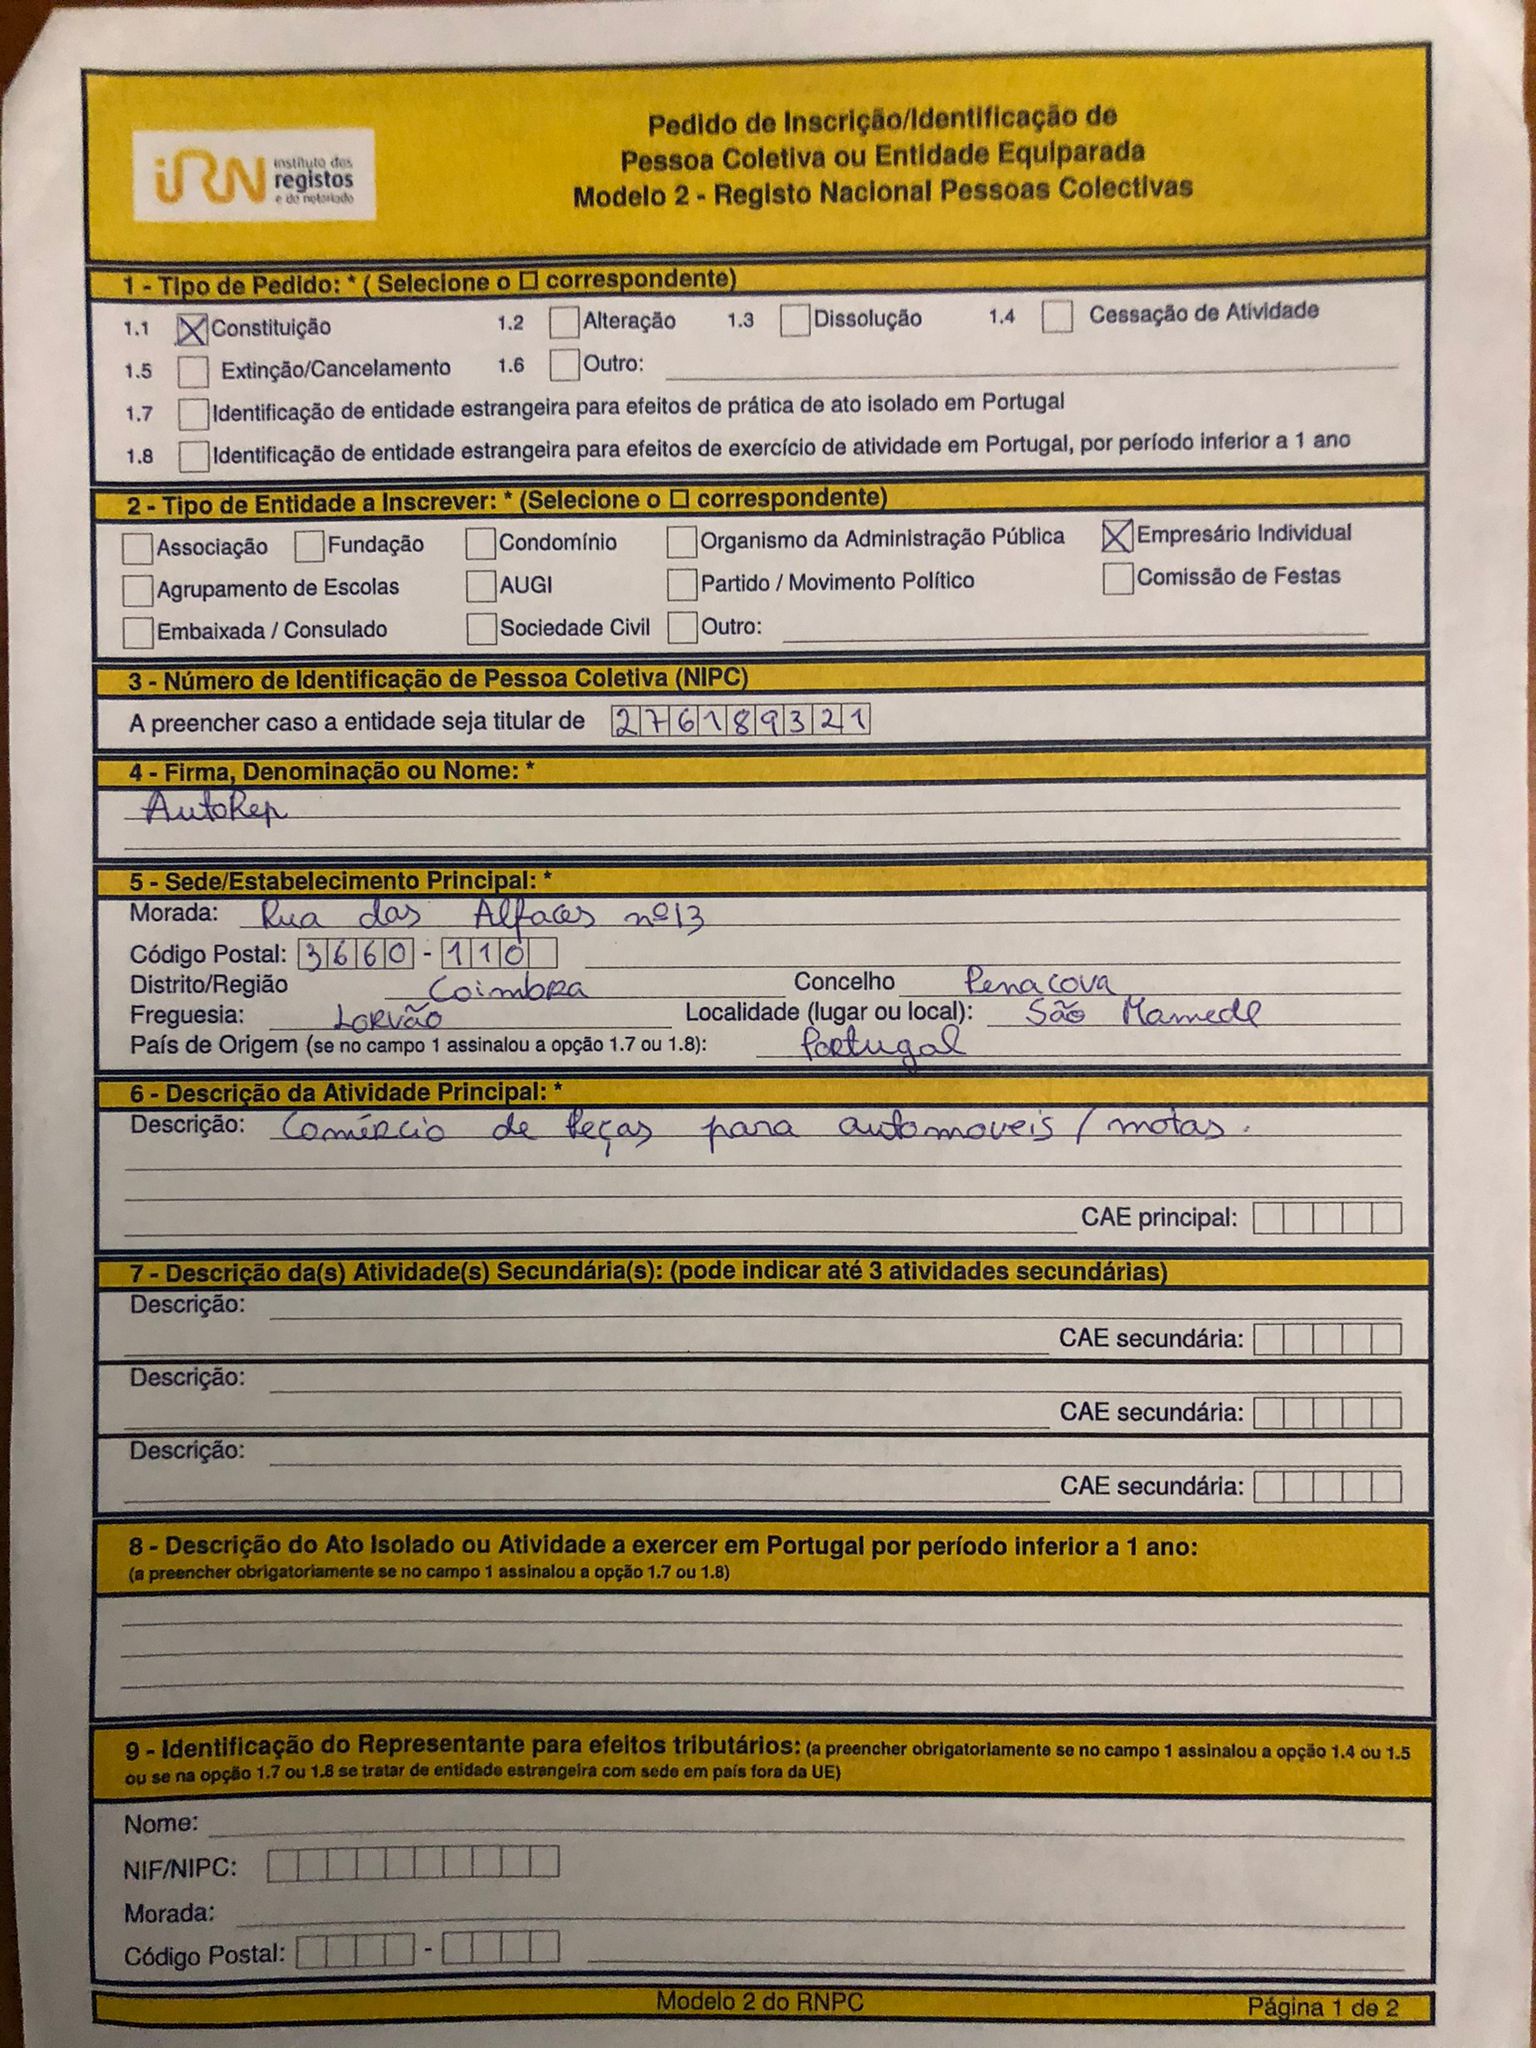 iRN instituto dos
registos
e do notariado
Pedido de Inscrição/Identificação de
Pessoa Coletiva ou Entidade Equiparada
Modelo 2 - Registo Nacional Pessoas Colectivas
1 - Tipo de Pedido: * ( Selecione o ☐ correspondente)
1.1 ☒ Constituição 1.2 ☐ Alteração 1.3 ☐ Dissolução 1.4 ☐ Cessação de Atividade
1.5 ☐ Extinção/Cancelamento 1.6 ☐ Outro:
1.7 ☐ Identificação de entidade estrangeira para efeitos de prática de ato isolado em Portugal
1.8 ☐ Identificação de entidade estrangeira para efeitos de exercício de atividade em Portugal, por período inferior a 1 ano
2 - Tipo de Entidade a Inscrever: * (Selecione o ☐ correspondente)
☐ Associação ☐ Fundação ☐ Condomínio ☐ Organismo da Administração Pública ☒ Empresário Individual
☐ Agrupamento de Escolas ☐ AUGI ☐ Partido / Movimento Político ☐ Comissão de Festas
☐ Embaixada / Consulado ☐ Sociedade Civil ☐ Outro:
3 - Número de Identificação de Pessoa Coletiva (NIPC)
A preencher caso a entidade seja titular de 276189321
4 - Firma, Denominação ou Nome: *
AutoRep
5 - Sede/Estabelecimento Principal: *
Morada: Rua das Alfaces nº13
Código Postal: 3660 - 110
Distrito/Região Coimbra Concelho Penacova
Freguesia: Lorvão Localidade (lugar ou local): São Mamede
País de Origem (se no campo 1 assinalou a opção 1.7 ou 1.8): Portugal
6 - Descrição da Atividade Principal: *
Descrição: Comércio de Peças para automoveis / motas.
CAE principal:
7 - Descrição da(s) Atividade(s) Secundária(s): (pode indicar até 3 atividades secundárias)
Descrição:
CAE secundária:
Descrição:
CAE secundária:
Descrição:
CAE secundária:
8 - Descrição do Ato Isolado ou Atividade a exercer em Portugal por período inferior a 1 ano:
(a preencher obrigatoriamente se no campo 1 assinalou a opção 1.7 ou 1.8)
9 - Identificação do Representante para efeitos tributários: (a preencher obrigatoriamente se no campo 1 assinalou a opção 1.4 ou 1.5
ou se na opção 1.7 ou 1.8 se tratar de entidade estrangeira com sede em país fora da UE)
Nome:
NIF/NIPC:
Morada:
Código Postal: -
Modelo 2 do RNPC Página 1 de 2